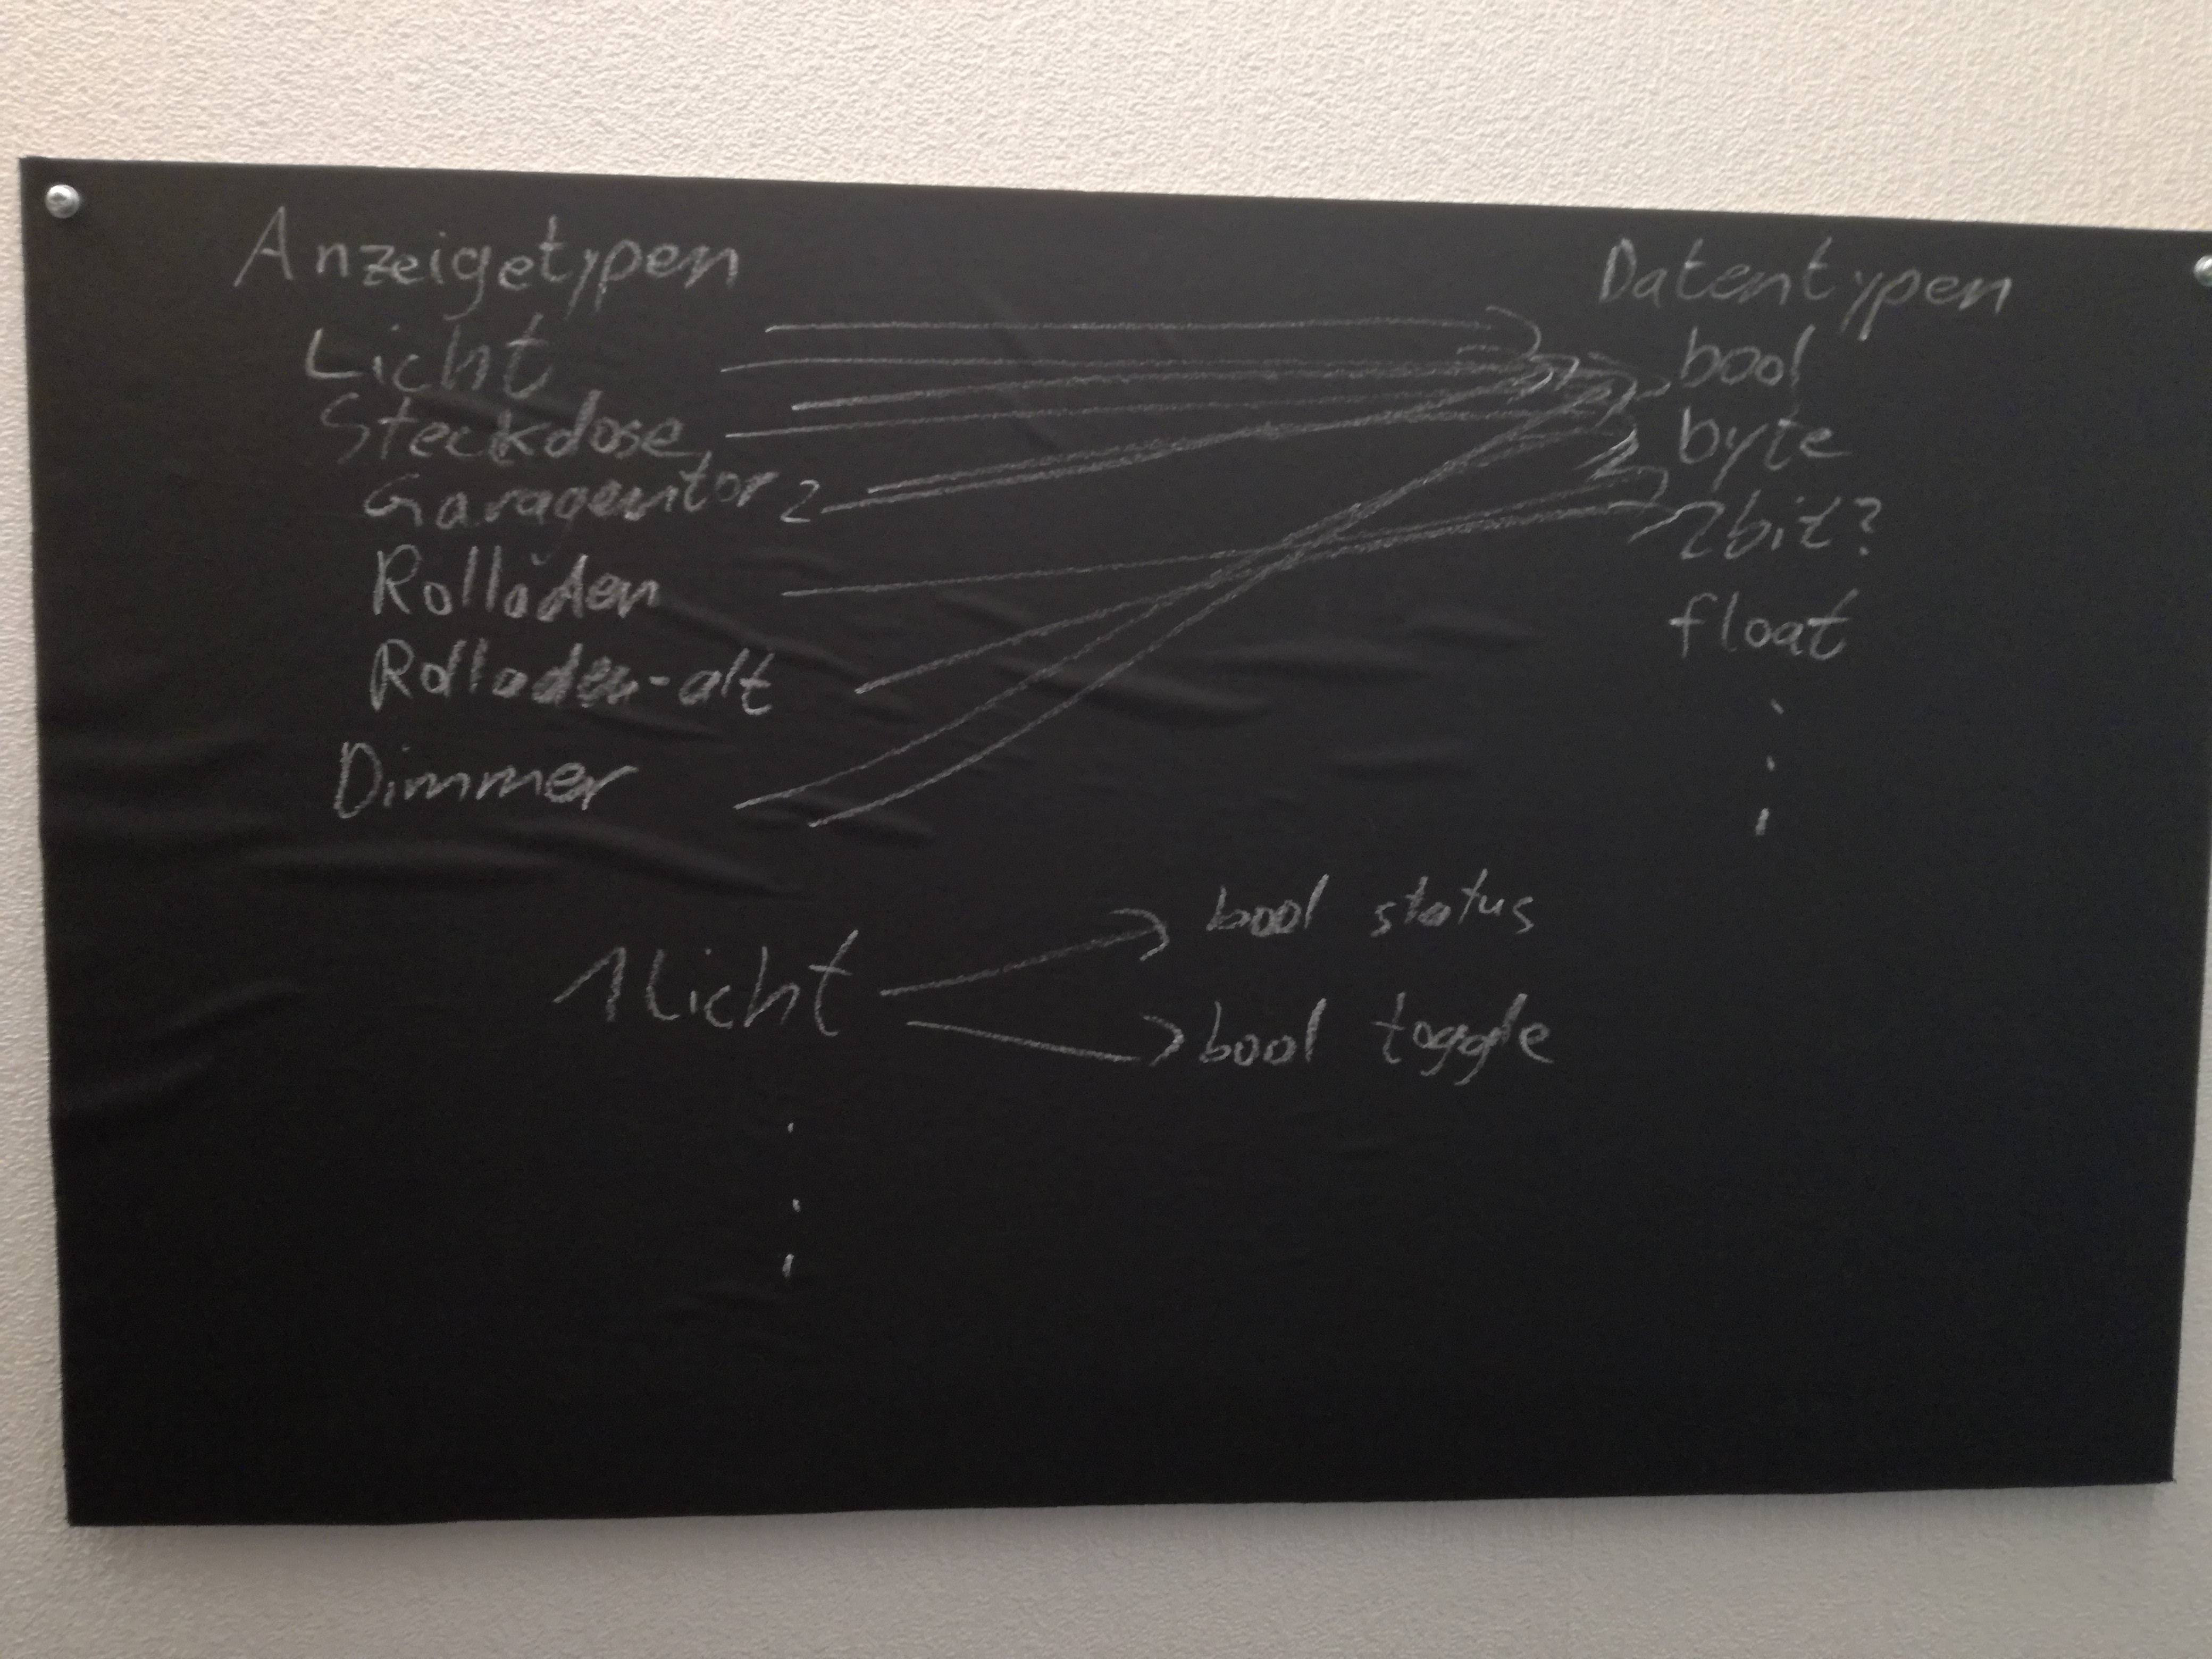 Anzeigetypen
Licht
Steckdose
Garagentor 2
Rolläden
Rolladen-alt
Dimmer
Datentypen
bool
byte
2bit?
float
1 Licht
bool status
bool toggle